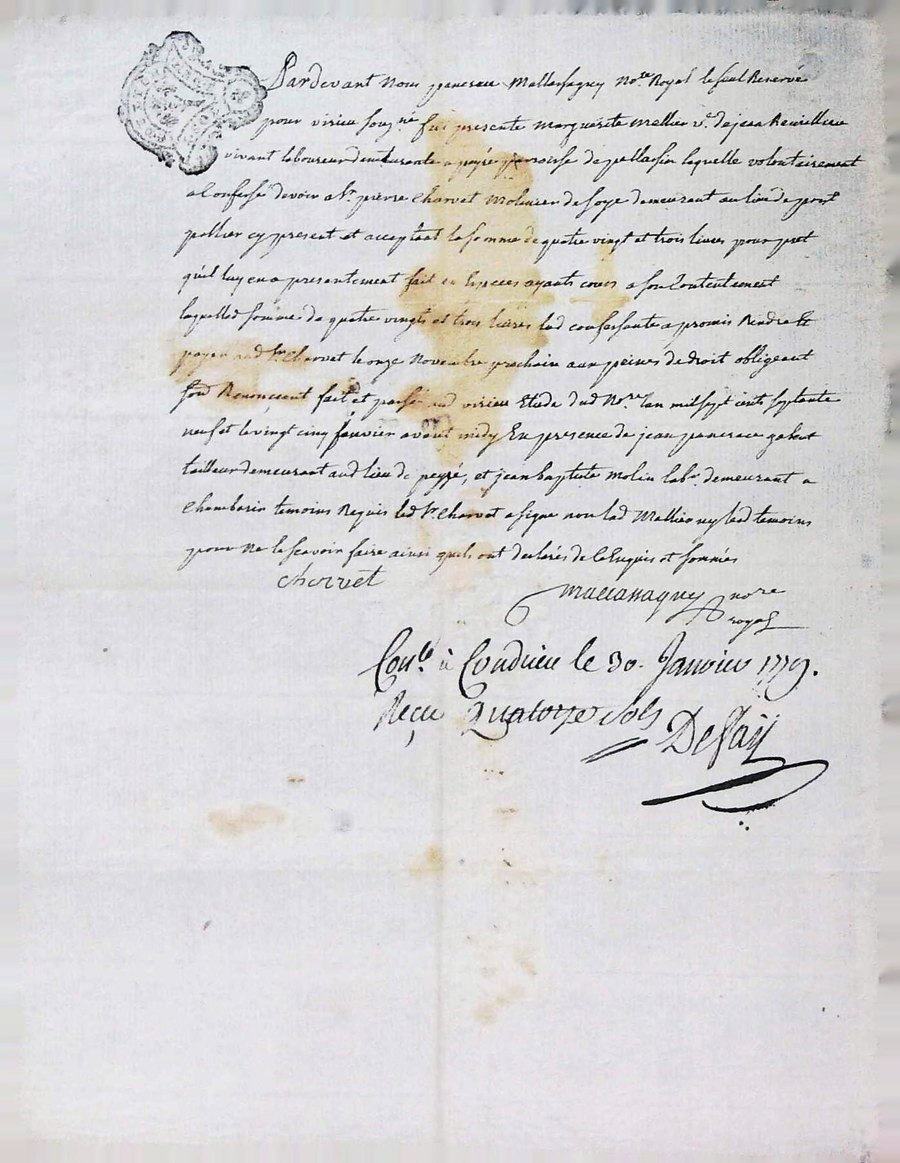 Pardevant Nous pancrace Mallassagny No.re Royal le seul Reservé
pour virieu souq.né fut presente marguerite mellier v.e de jean
vivant laboureur demeurante a peyré parroisse de pellassin laquelle volontairement
a Confessé devoir a s.r pierre Charvet Molinier de soye demeurant au lieu de pont
cy present et acceptant la somme de quatre vingt et trois livres pour pret
qu'il luy en a presentement fait en Especes ayants cours a son Contentement
laquelled somme de quatre vingts et trois livres lad confessante a promis Rendre et
payer aud s.r Charvet le onze Novembre prochain aux peines de droit obligeant
soud Renonceant fait et passé aud virieu Etude dud No.re l'an mil sept cents septante
neuf et le vingt cinq janvier avant midy En presence de jean pancrace
tailleur demeurant aud lieu de peyré, et jean baptiste Molin lab.r demeurant a
Chambarin temoins Requis led s.r Charvet a signé non lad Mallier ny led temoins
pour ne le scavoir faire ainsi quels ont declarés de ce Enquis et sommés
charvet
mallassagny no.re
royal
Con.lé à Condrieu le 30. Janvier 1779.
Reçu Quatorze sols
Defay